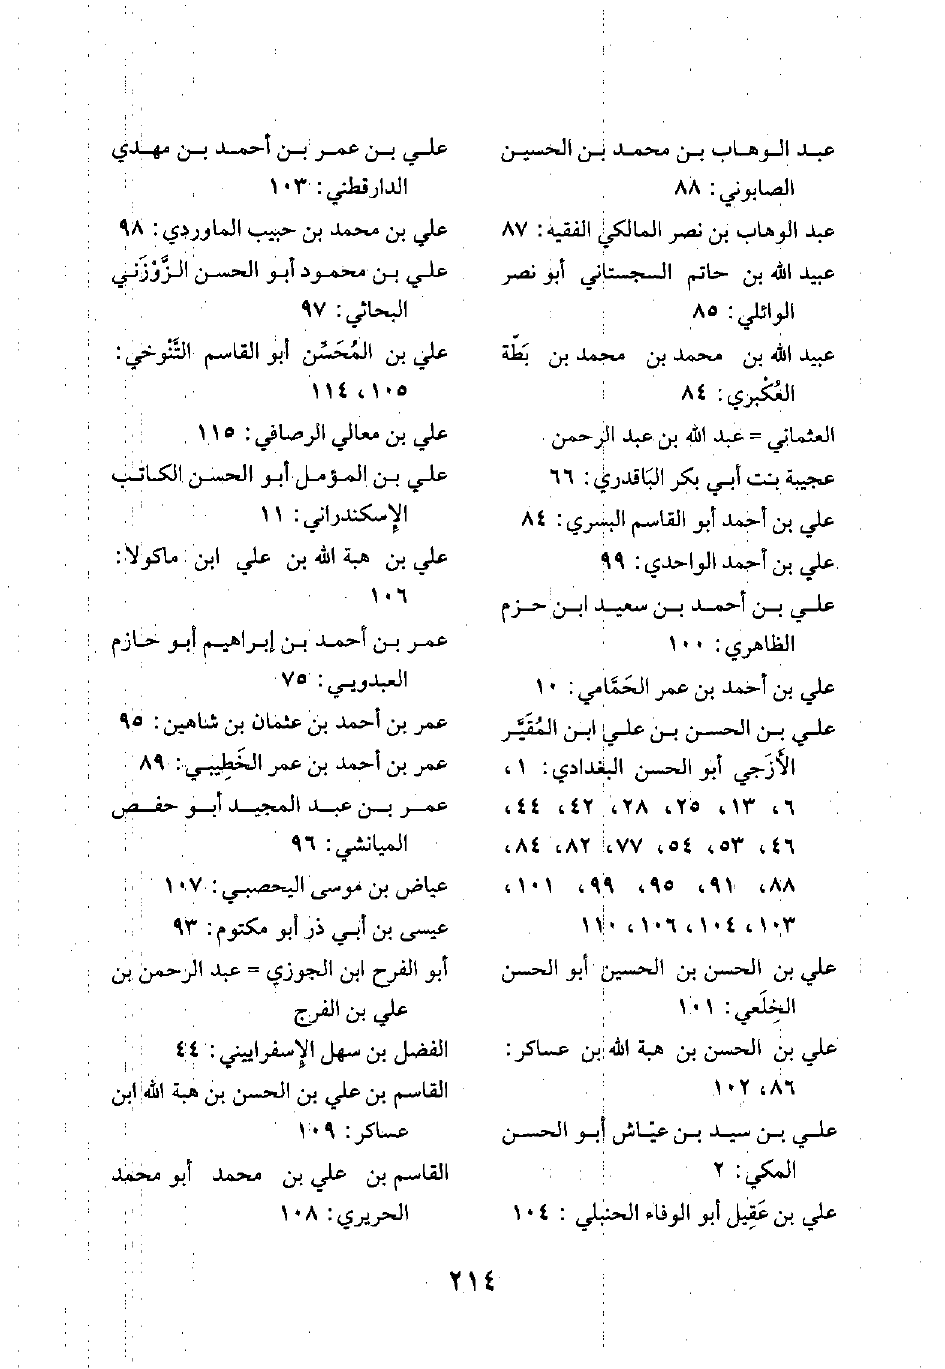 عبد الوهاب بن محمد بن الحسين
الصابوني: ٨٨
عبد الوهاب بن نصر المالكي الفقيه: ٨٧
عبيد الله بن حاتم السجستاني أبو نصر
الوائلي: ٨٥
عبيد الله بن محمد بن محمد بن بَطّة
العُكْبري: ٨٤
العثماني = عبد الله بن عبد الرحمن
عجيبة بنت أبي بكر البَاقدري: ٦٦
علي بن أحمد أبو القاسم البسري: ٨٤
علي بن أحمد الواحدي: ٩٩
علي بن أحمد بن سعيد ابن حزم
الظاهري: ١٠٠
علي بن أحمد بن عمر الحَمَّامي: ١٠
علي بن الحسن بن علي ابن المُقَيَّر
الأَزَجي أبو الحسن البغدادي: ١،
٦، ١٣، ٢٥، ٢٨، ٤٢، ٤٤،
٤٦، ٥٣، ٥٤، ٧٧، ٨٢، ٨٤،
٨٨، ٩١، ٩٥، ٩٩، ١٠١،
١٠٣، ١٠٤، ١٠٦، ١١٠
علي بن الحسن بن الحسين أبو الحسن
الخِلَعي: ١٠١
علي بن الحسن بن هبة الله بن عساكر:
٨٦، ١٠٢
علي بن سيد بن عيّاش أبو الحسن
المكي: ٢
علي بن عَقِيل أبو الوفاء الحنبلي: ١٠٤
علي بن عمر بن أحمد بن مهدي
الدارقطني: ١٠٣
علي بن محمد بن حبيب الماوردي: ٩٨
علي بن محمود أبو الحسن الزَّوْزَني
البحاثي: ٩٧
علي بن المُحَسِّن أبو القاسم التَّنوخي:
١٠٥، ١١٤
علي بن معالي الرصافي: ١١٥
علي بن المؤمل أبو الحسن الكاتب
الإسكندراني: ١١
علي بن هبة الله بن علي ابن ماكولا:
١٠٦
عمر بن أحمد بن إبراهيم أبو حازم
العبدويي: ٧٥
عمر بن أحمد بن عثمان بن شاهين: ٩٥
عمر بن أحمد بن عمر الخَطِيبي: ٨٩
عمر بن عبد المجيد أبو حفص
الميانشي: ٩٦
عياض بن موسى اليحصبي: ١٠٧
عيسى بن أبي ذر أبو مكتوم: ٩٣
أبو الفرح ابن الجوزي = عبد الرحمن بن
علي بن الفرج
الفضل بن سهل الإسفراييني: ٤٤
القاسم بن علي بن الحسن بن هبة الله ابن
عساكر: ١٠٩
القاسم بن علي بن محمد أبو محمد
الحريري: ١٠٨
٢١٤